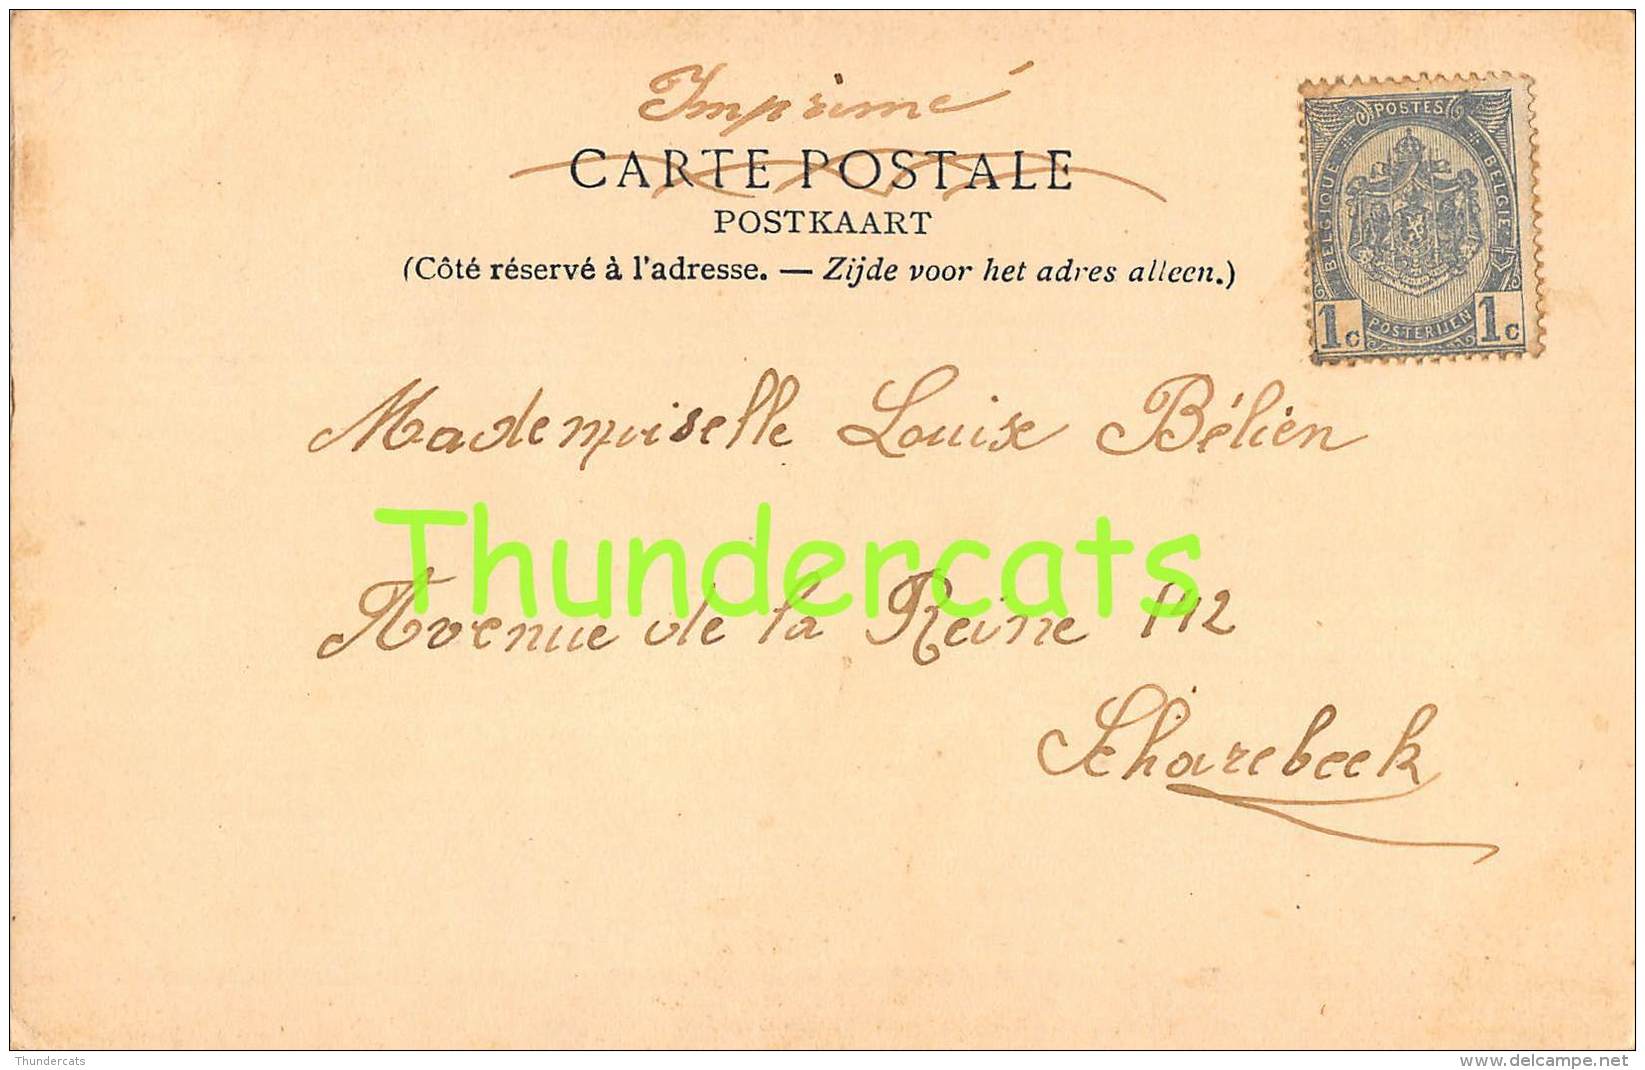 Imprimé
CARTE POSTALE
POSTKAART
(Côté réservé à l'adresse. — Zijde voor het adres alleen.)
POSTES
BELGIQUE
BELGIE
1c POSTERIJEN 1c
Mademoiselle Louise Bélien
Thundercats
Avenue de la Reine 142
Scharebeek
Thundercats
www.delcampe.net